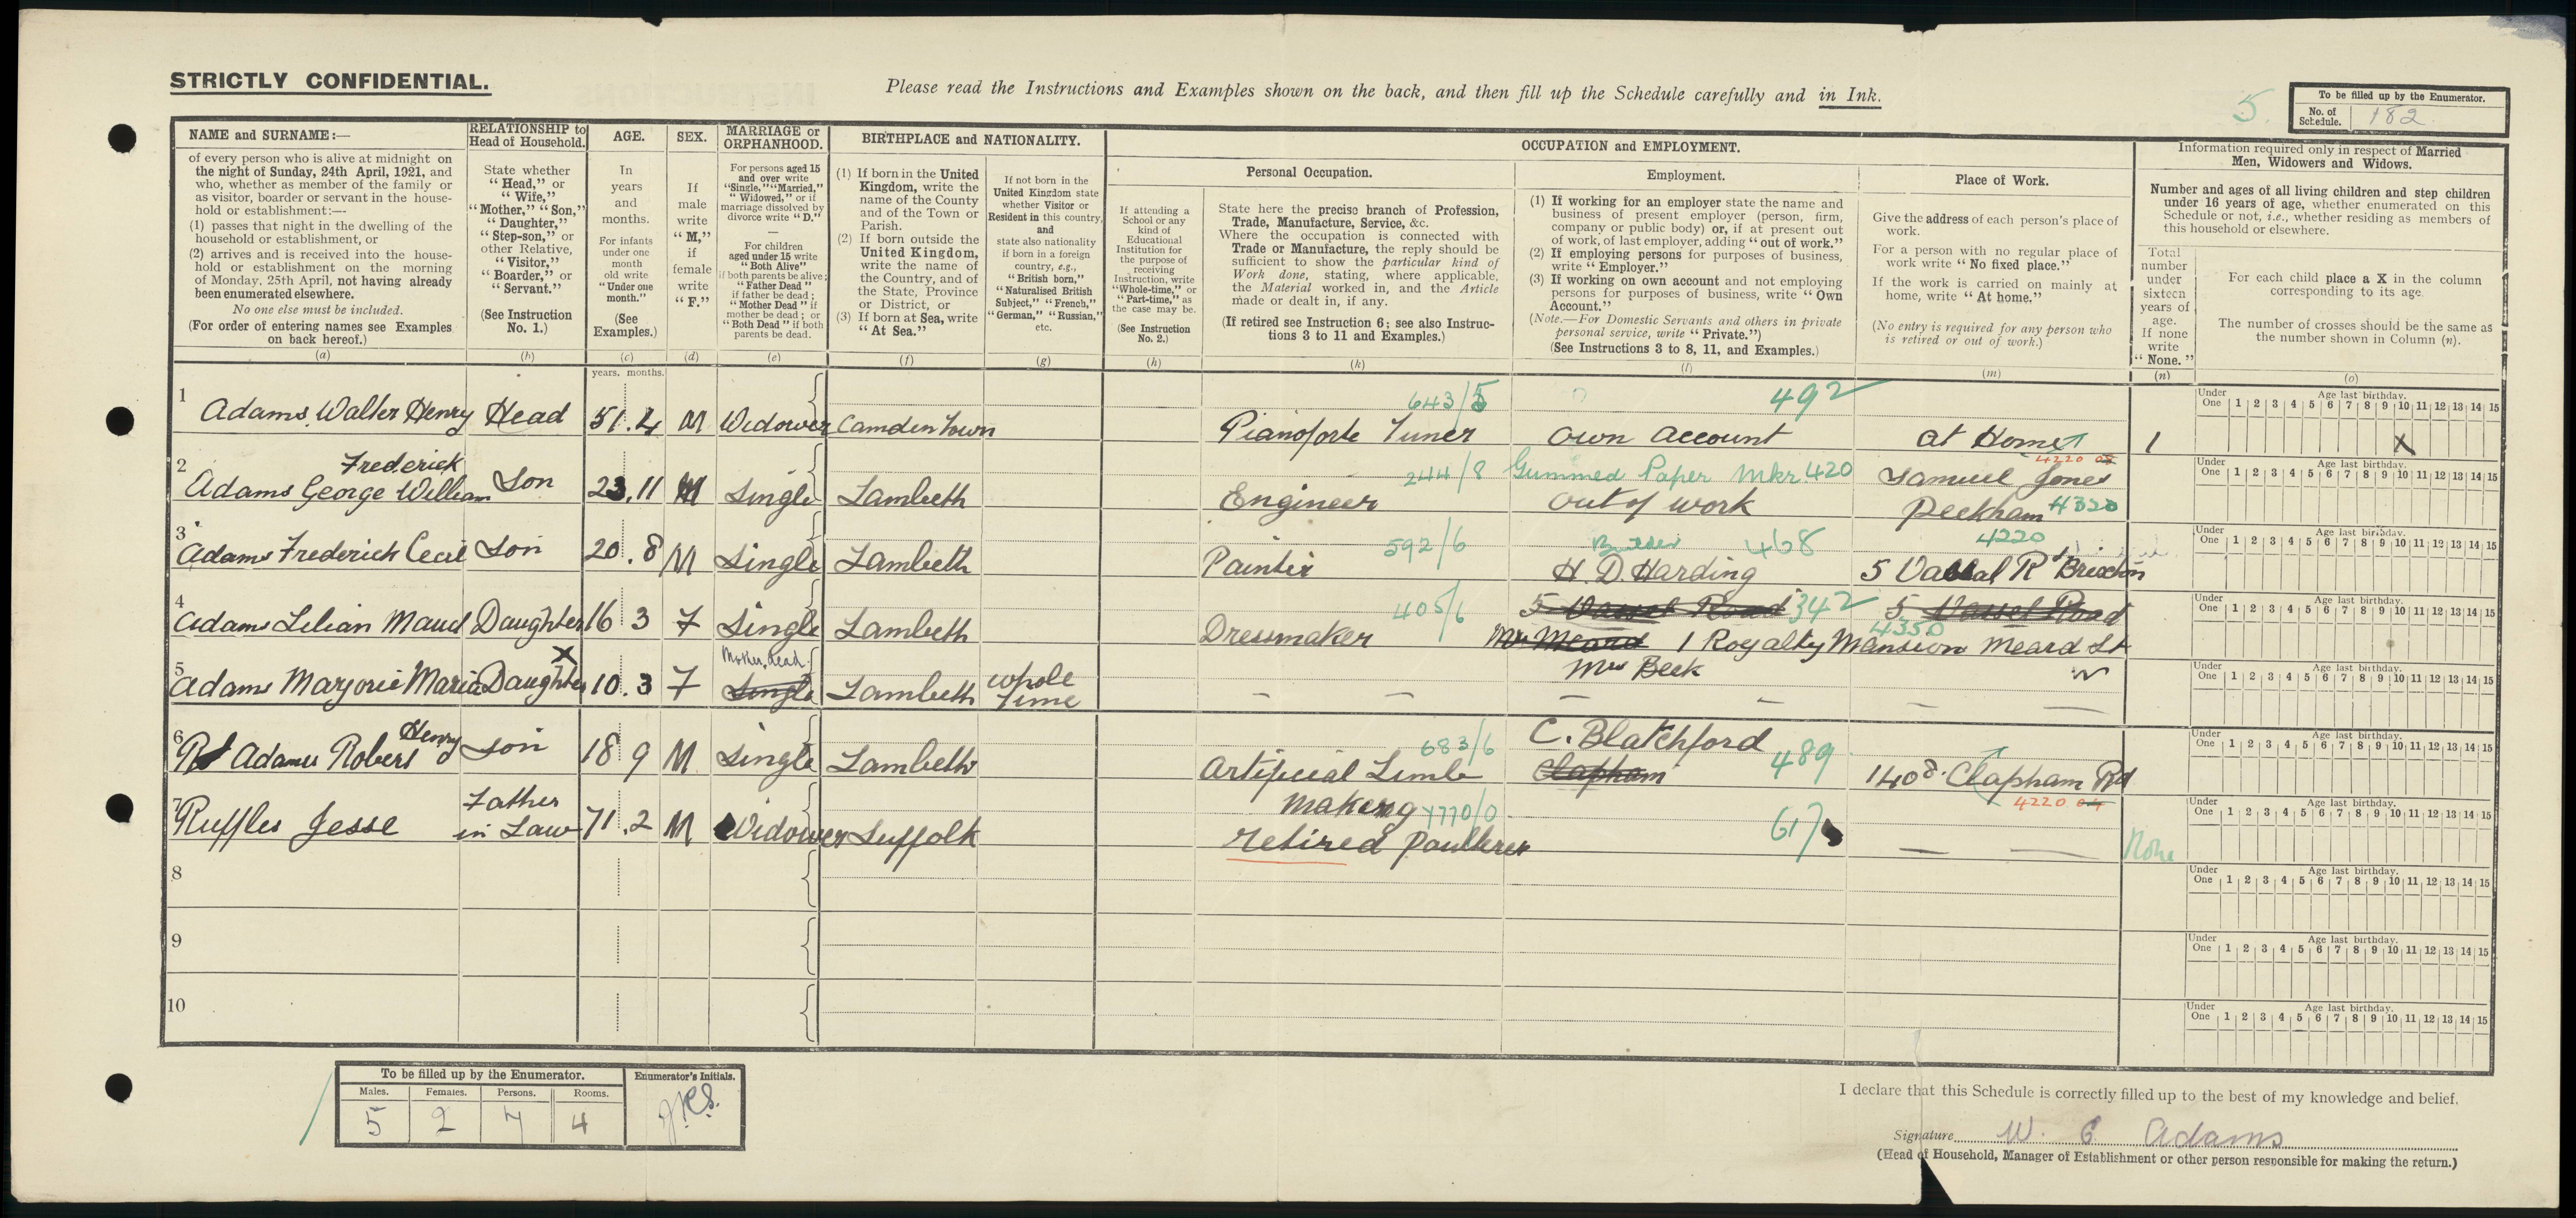 STRICTLY CONFIDENTIAL.
Please read the Instructions and Examples shown on the back, and then fill up the Schedule carefully and in Ink.
5
To be filled up by the Enumerator.
No. of Schedule. 182
NAME and SURNAME:—
of every person who is alive at midnight on
the night of Sunday, 24th April, 1921, and
who, whether as member of the family or
as visitor, boarder or servant in the house-
hold or establishment:—
(1) passes that night in the dwelling of the
household or establishment, or
(2) arrives and is received into the house-
hold or establishment on the morning
of Monday, 25th April, not having already
been enumerated elsewhere.
No one else must be included.
(For order of entering names see Examples
on back hereof.)
(a)
RELATIONSHIP to
Head of Household.
State whether
"Head," or
"Wife,"
"Mother," "Son,"
"Daughter,"
"Step-son," or
other Relative,
"Visitor,"
"Boarder," or
"Servant."
(See Instruction
No. 1.)
(b)
AGE.
In
years
and
months.
For infants
under one
month
old write
"Under one
month."
(See
Examples.)
(c)
years. months.
SEX.
If
male
write
"M,"
if
female
write
"F."
(d)
MARRIAGE or
ORPHANHOOD.
For persons aged 15
and over write
"Single," "Married,"
"Widowed," or if
marriage dissolved by
divorce write "D."
—
For children
aged under 15 write
"Both Alive"
if both parents be alive;
"Father Dead"
if father be dead;
"Mother Dead" if
mother be dead; or
"Both Dead" if both
parents be dead.
(e)
BIRTHPLACE and NATIONALITY.
(1) If born in the United
Kingdom, write the
name of the County
and of the Town or
Parish.
(2) If born outside the
United Kingdom,
write the name of
the Country, and of
the State, Province
or District, or
(3) If born at Sea, write
"At Sea."
(f)
If not born in the
United Kingdom state
whether Visitor or
Resident in this country,
and
state also nationality
if born in a foreign
country, e.g.,
"British born,"
"Naturalised British
Subject," "French,"
"German," "Russian,"
etc.
(g)
OCCUPATION and EMPLOYMENT.
If attending a
School or any
kind of
Educational
Institution for
the purpose of
receiving
Instruction, write
"Whole-time," or
"Part-time," as
the case may be.
(See Instruction
No. 2.)
(h)
Personal Occupation.
State here the precise branch of Profession,
Trade, Manufacture, Service, &c.
Where the occupation is connected with
Trade or Manufacture, the reply should be
sufficient to show the particular kind of
Work done, stating, where applicable,
the Material worked in, and the Article
made or dealt in, if any.
(If retired see Instruction 6; see also Instruc-
tions 3 to 11 and Examples.)
(k)
Employment.
(1) If working for an employer state the name and
business of present employer (person, firm,
company or public body) or, if at present out
of work, of last employer, adding "out of work."
(2) If employing persons for purposes of business,
write "Employer."
(3) If working on own account and not employing
persons for purposes of business, write "Own
Account."
(Note.—For Domestic Servants and others in private
personal service, write "Private.")
(See Instructions 3 to 8, 11, and Examples.)
(l)
Place of Work.
Give the address of each person's place of
work.
For a person with no regular place of
work write "No fixed place."
If the work is carried on mainly at
home, write "At home."
(No entry is required for any person who
is retired or out of work.)
(m)
Information required only in respect of Married
Men, Widowers and Widows.
Number and ages of all living children and step children
under 16 years of age, whether enumerated on this
Schedule or not, i.e., whether residing as members of
this household or elsewhere.
Total
number
under
sixteen
years of
age.
If none
write
"None."
(n)
For each child place a X in the column
corresponding to its age.
The number of crosses should be the same as
the number shown in Column (n).
(o)
1 Adams, Walter Henry Head 51.4 M Widower Camden Town 643/5 Pianoforte Tuner own account 492 at Home 1
Under One Age last birthday. 1 2 3 4 5 6 7 8 9 10 11 12 13 14 15
X
2 Frederick
Adams George William Son 23.11 M Single Lambeth 244/8 Engineer Gummed Paper Mkr 420 out of work Samuel Jones 4220 Peckham 4320
Under One Age last birthday. 1 2 3 4 5 6 7 8 9 10 11 12 13 14 15
3 Adams Frederick Cecil Son 20.8 M Single Lambeth 592/6 Painter Builder 468 H. D. Harding 4220 5 Vassal Rd Brixton
Under One Age last birthday. 1 2 3 4 5 6 7 8 9 10 11 12 13 14 15
4 Adams Lilian Maud Daughter 16 3 F Single Lambeth 405/6 Dressmaker 5 Vassel Road 342 5 Vassel Road 4350
Mr Meard 1 Royalty Mansion Meard St
Mrs Beek
Under One Age last birthday. 1 2 3 4 5 6 7 8 9 10 11 12 13 14 15
5 Adams Marjorie Maria Daughter X 10.3 F Mother Dead Single Lambeth whole time
Under One Age last birthday. 1 2 3 4 5 6 7 8 9 10 11 12 13 14 15
6 Henry
Adams Robert Son 18 9 M Single Lambeth 683/6 Artificial Limb Making C. Blatchford Clapham 489 140 Clapham Rd 4220
Under One Age last birthday. 1 2 3 4 5 6 7 8 9 10 11 12 13 14 15
7 Ruffles Jesse Father in Law 71.2 M Widower Suffolk Y770/0 retired Poulterer 617 None
Under One Age last birthday. 1 2 3 4 5 6 7 8 9 10 11 12 13 14 15
8
Under One Age last birthday. 1 2 3 4 5 6 7 8 9 10 11 12 13 14 15
9
Under One Age last birthday. 1 2 3 4 5 6 7 8 9 10 11 12 13 14 15
10
Under One Age last birthday. 1 2 3 4 5 6 7 8 9 10 11 12 13 14 15
To be filled up by the Enumerator.
Males. Females. Persons. Rooms.
5 2 7 4
Enumerator's Initials.
I declare that this Schedule is correctly filled up to the best of my knowledge and belief.
Signature W. E Adams
(Head of Household, Manager of Establishment or other person responsible for making the return.)